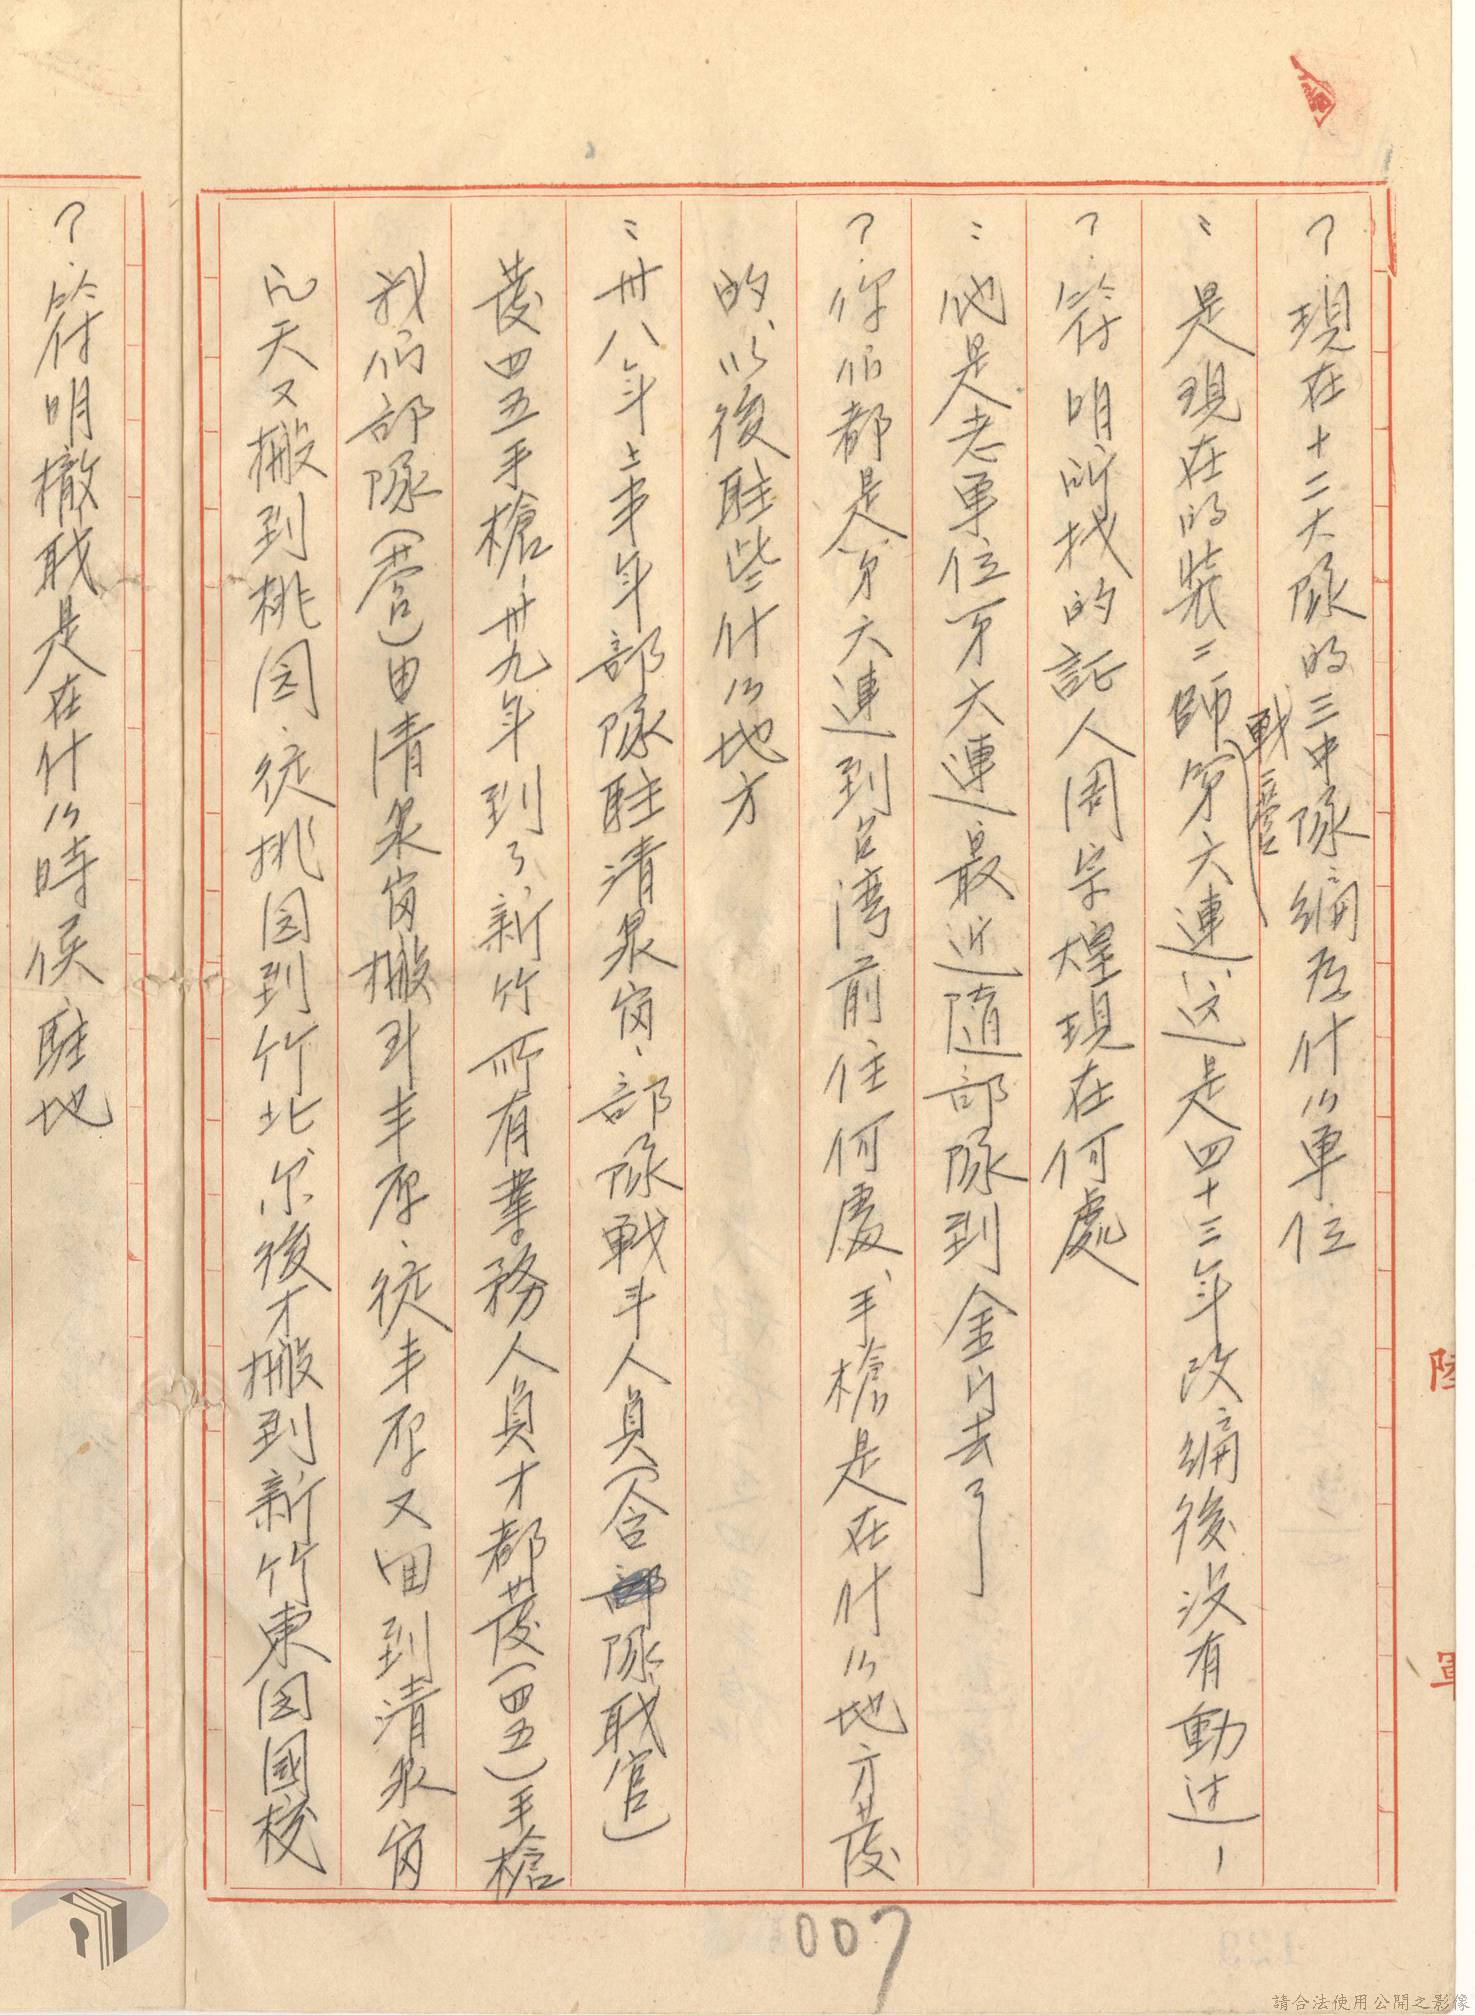 ?現在十二大隊的三中隊編為什么單位
:是現在的裝二師戰三營第六連、这是四十三年改編後没有動过
?符明所找的証人周宗煌現在何處
:他是老單位第六連最近随部隊到金门去了
?你们都是第六連到台湾前住何處、手槍是在什么地方發
的、以後駐些什么地方
:卅八年上半年部隊駐清泉岗、部隊戰斗人員(含隊职官)
發四五手槍、卅九年到了新竹所有業務人員才都發(四五)手槍
我们部隊(營)由清泉岗搬到丰原、從丰原又回到清泉岗
几天又搬到桃园、從桃园到竹北、尔後才搬到新竹東园國校
?符明撤职是在什么時侯、駐地
007
陸
軍
請合法使用公開之影像